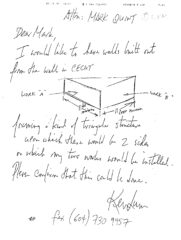 Attn: MARK QUINT
Dear Mark,
I would like to have walls built out
from the wall in
WORK A
WORK B
forming a kind of triangular structure
upon which there would be 2 sides
on which my two works would be installed.
Please confirm that this could be done.
fax (604) 730 9957